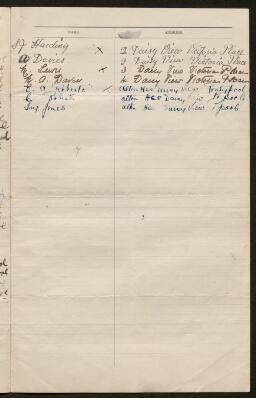 NAME. ADDRESS.
S J Harding x 2 Daisy View Victoria Place
A Davies 2 Daisy View Victoria Place
E Lewis x 3 Daisy View Victoria Place
M. A. Davies 4 Daisy View Victoria Place
Roberts alton Hse Daisy View Pontypool
E Roberts alton Hse Daisy View
Jones alton Hse Daisy View